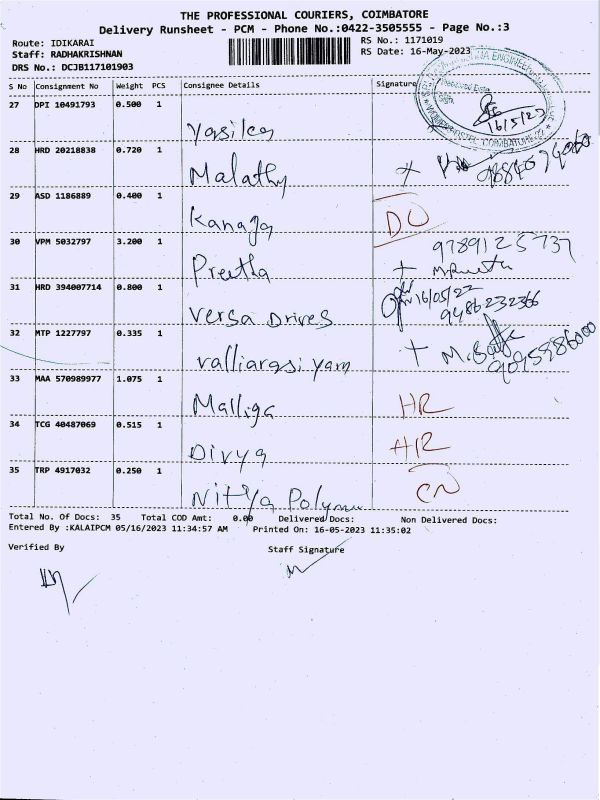 THE PROFESSIONAL COURIERS, COIMBATORE
Delivery Runsheet - PCM - Phone No.:0422-3505555 - Page No.:3
Route: IDIKARAI RS No.: 1171019
Staff: RADHAKRISHNAN RS Date: 16-May-2023
DRS No.: DCJB117101903
S No Consignment No Weight PCS Consignee Details Signature
27 DPI 10491793 0.500 1
Yasika 16/5/23
28 HRD 20218838 0.720 1
Malathy
29 ASD 1186889 0.400 1
Kanaga DO
30 VPM 5032797 3.200 1 9789125737
Preetha
31 HRD 394007714 0.800 1 16/05/22
Versa Drives 9486232366
32 MTP 1227797 0.335 1
valliarasi yam
33 MAA 570989977 1.075 1
Malliga HR
34 TCG 40487069 0.515 1
Divya HR
35 TRP 4917032 0.250 1
Nitya CN
Total No. Of Docs: 35 Total COD Amt: 0.00 Delivered Docs: Non Delivered Docs:
Entered By :KALAIPCM 05/16/2023 11:34:57 AM Printed On: 16-05-2023 11:35:02
Verified By Staff Signature